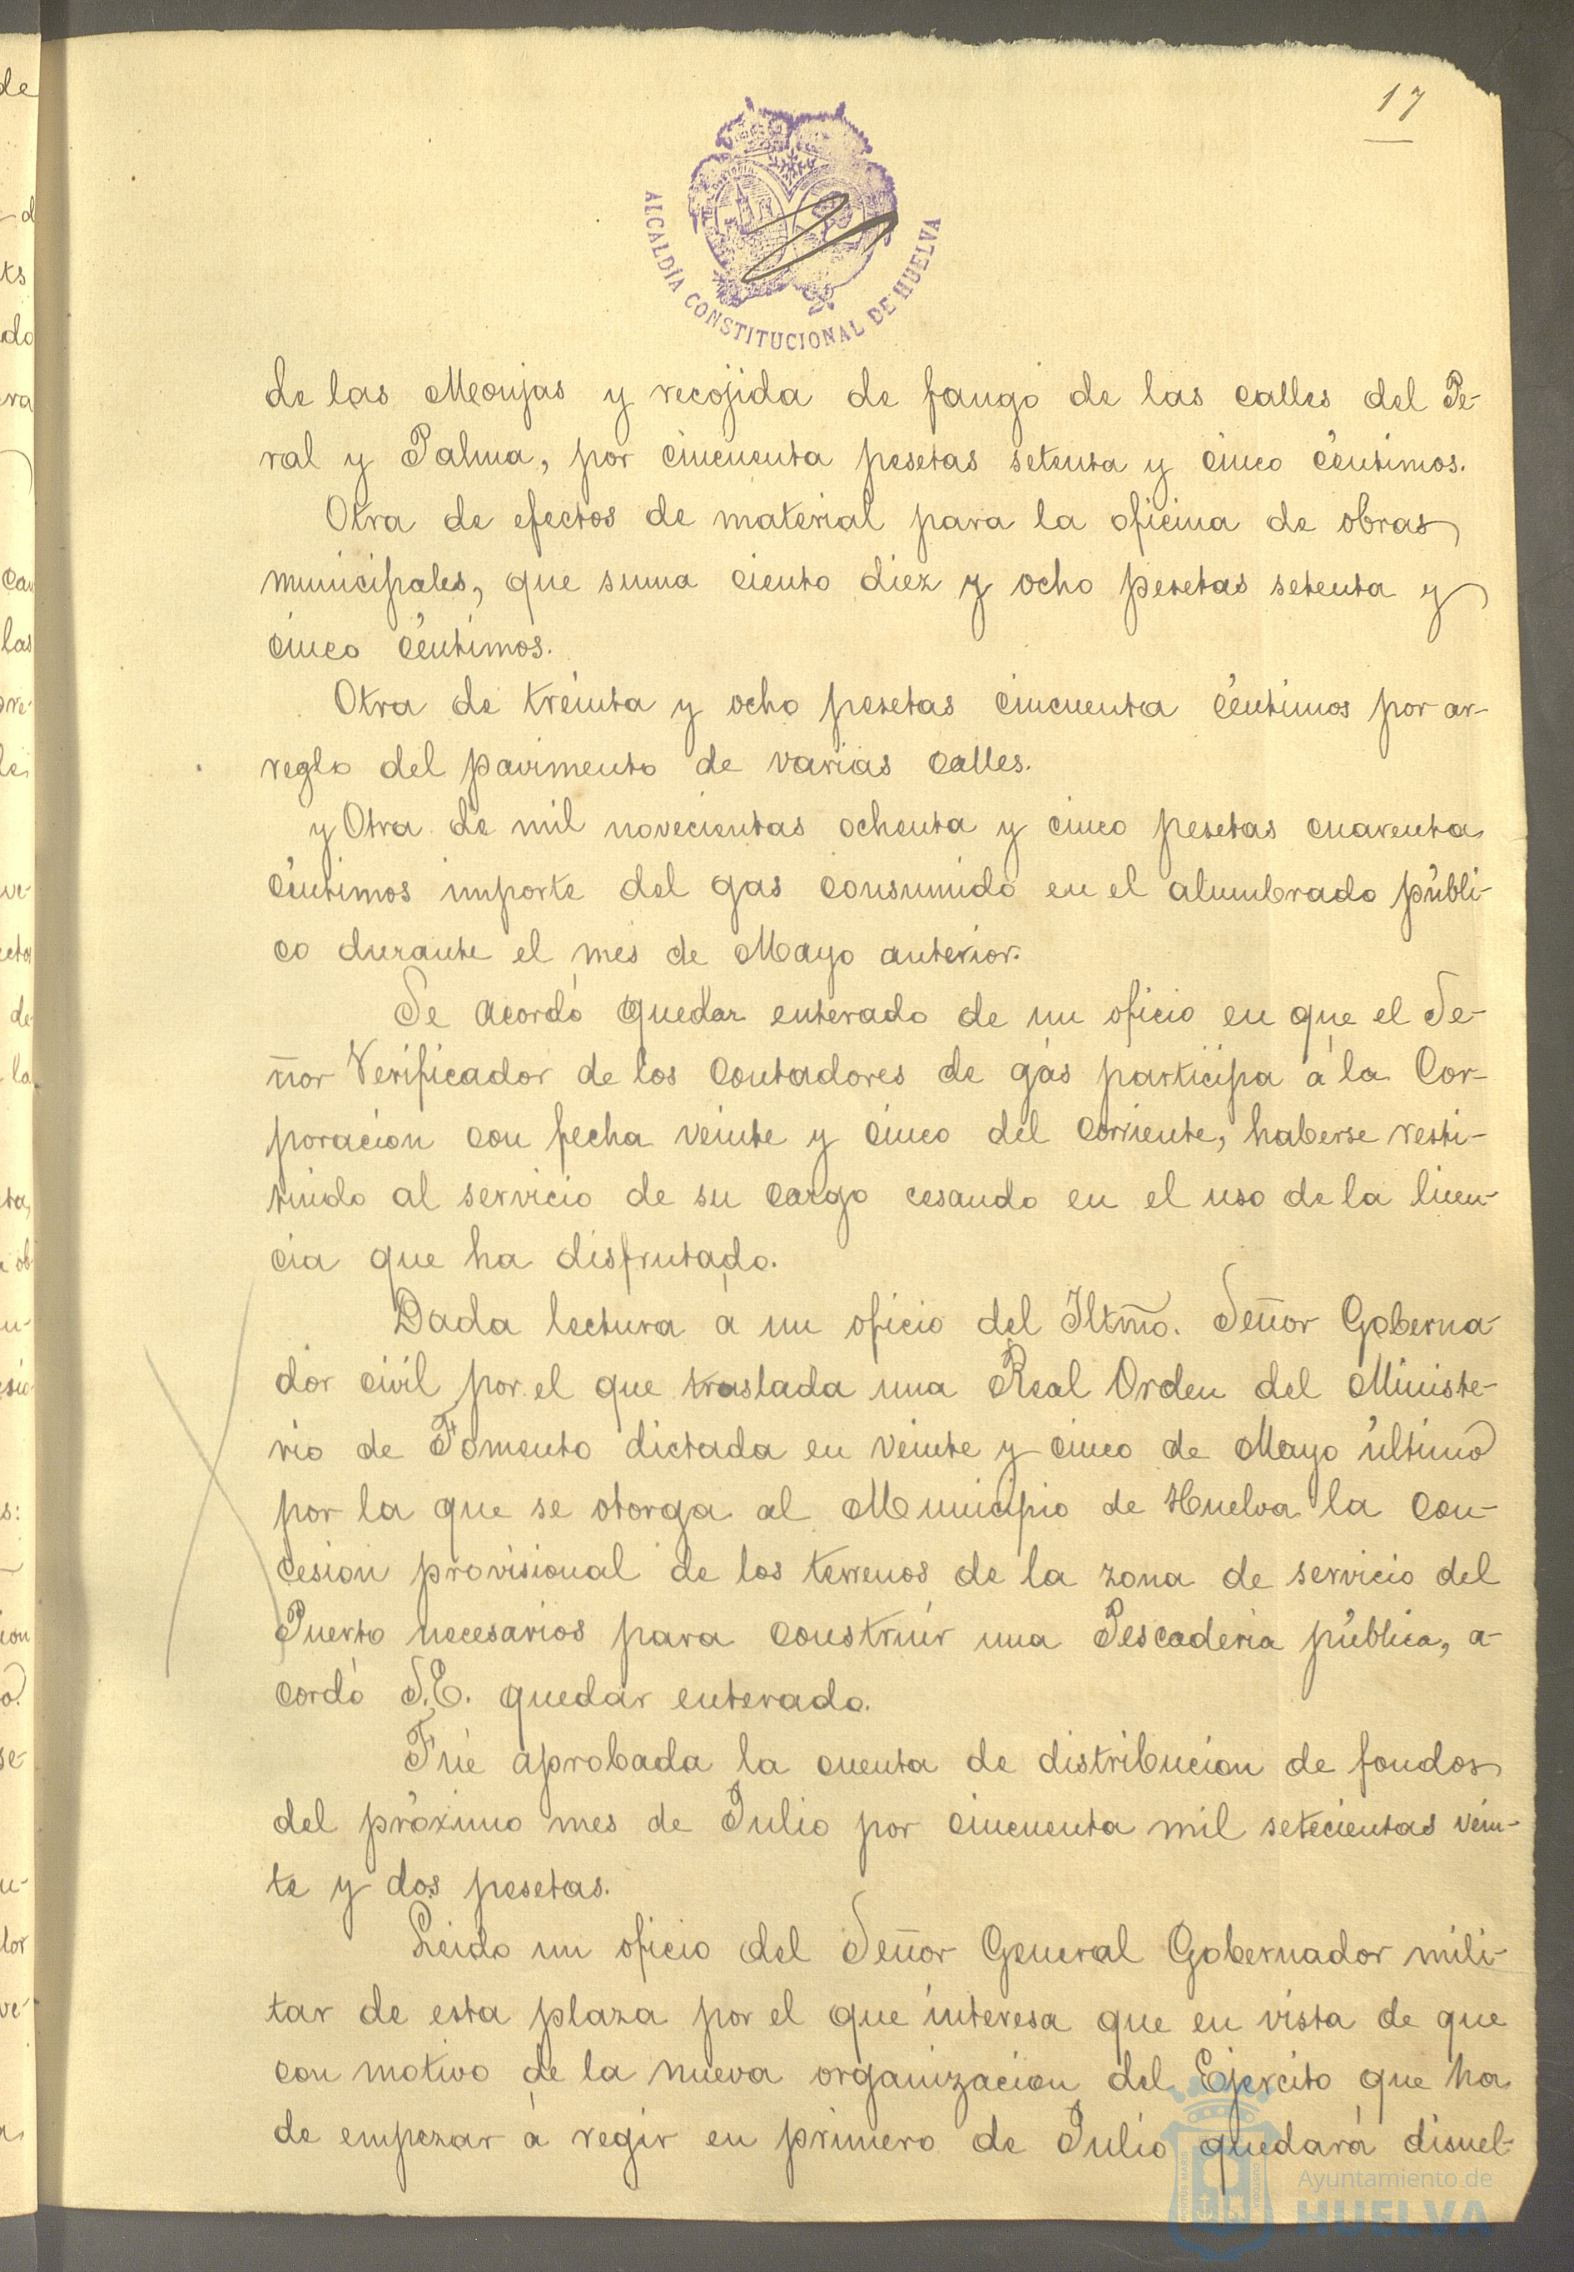 17
ALCALDÍA CONSTITUCIONAL DE HUELVA
de las Monjas y recojida de fango de las calles del Pe-
ral y Palma, por cincuenta pesetas setenta y cinco céntimos.
Otra de efectos de material para la oficina de obras
municipales, que suma ciento diez y ocho pesetas setenta y
cinco céntimos.
Otra de treinta y ocho pesetas cincuenta céntimos por ar-
reglo del pavimento de varias calles.
y Otra de mil novecientas ochenta y cinco pesetas cuarenta
céntimos importe del gas consumido en el alumbrado públi-
co durante el mes de Mayo anterior.
Se acordó quedar enterado de un oficio en que el Se-
ñor Verificador de los contadores de gás participa á la Cor-
poracion con fecha veinte y cinco del corriente, haberse resti-
tuido al servicio de su cargo cesando en el uso de la licen-
cia que ha disfrutado.
Dada lectura á un oficio del Iltmo. Señor Goberna-
dor civil por el que traslada una Real Orden del Ministe-
rio de Fomento dictada en veinte y cinco de Mayo último
por la que se otorga al Municipio de Huelva la con-
cesion provisional de los terrenos de la zona de servicio del
Puerto necesarios para construir una Pescaderia pública, a-
cordó S.E. quedar enterado.
Fué aprobada la cuenta de distribucion de fondos
del próximo mes de Julio por cincuenta mil setecientas vein-
te y dos pesetas.
Leido un oficio del Señor General Gobernador mili-
tar de esta plaza por el que interesa que en vista de que
con motivo de la nueva organizacion del Ejercito que ha
de empezar á regir en primero de Julio quedará disuel-
Ayuntamiento de
HUELVA